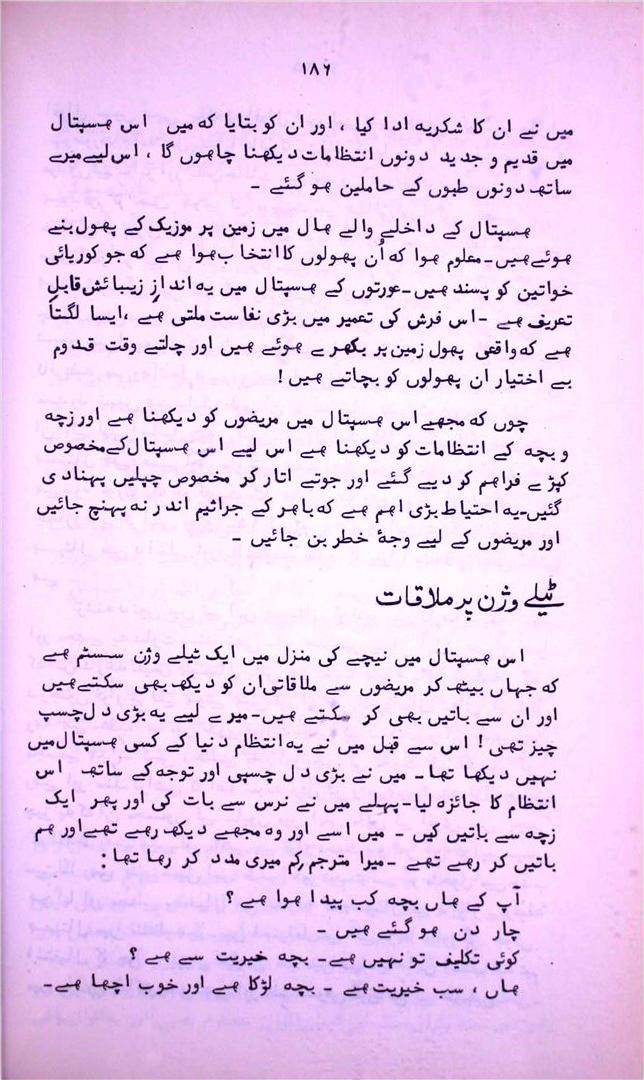 ۱۸۶
میں نے ان کا شکریہ ادا کیا ، اور ان کو بتایا کہ میں اس ہسپتال
میں قدیم و جدید دونوں انتظامات دیکھنا چاہوں گا ، اس لیے میرے
ساتھ دونوں طبوں کے حاملین ہو گئے ۔
ہسپتال کے داخلے والے ہال میں زمین پر موزیک کے پھول بنے
ہوئے ہیں۔ معلوم ہوا کہ اُن پھولوں کا انتخاب ہوا ہے کہ جو کوریائی
خواتین کو پسند ہیں۔ عورتوں کے ہسپتال میں یہ اندازِ زیبائش قابلِ
تعریف ہے ۔ اس فرش کی تعمیر میں بڑی نفاست ملتی ہے ، ایسا لگتا
ہے کہ واقعی پھول زمین پر بکھرے ہوئے ہیں اور چلتے وقت قدوم
بے اختیار ان پھولوں کو بچاتے ہیں !
چوں کہ مجھے اس ہسپتال میں مریضوں کو دیکھنا ہے اور زچہ
و بچہ کے انتظامات کو دیکھنا ہے اس لیے اس ہسپتال کے مخصوص
کپڑے فراہم کو دیے گئے اور جوتے اتار کر مخصوص چپلیں پہنا دی
گئیں۔ یہ احتیاط بڑی اہم ہے کہ باہر کے جراثیم اندر نہ پہنچ جائیں
اور مریضوں کے لیے وجۂ خطر بن جائیں ۔
ٹیلے وژن پر ملاقات
اس ہسپتال میں نیچے کی منزل میں ایک ٹیلے وژن سسٹم ہے
کہ جہاں بیٹھ کر مریضوں سے ملاقاتی ان کو دیکھ بھی سکتے ہیں
اور ان سے باتیں بھی کر سکتے ہیں۔ میرے لیے یہ بڑی دل چسپ
چیز تھی ! اس سے قبل میں نے یہ انتظام دنیا کے کسی ہسپتال میں
نہیں دیکھا تھا۔ میں نے بڑی دل چسپی اور توجہ کے ساتھ اس
انتظام کا جائزہ لیا۔ پہلے میں نے نرس سے بات کی اور پھر ایک
زچہ سے باتیں کیں ۔ میں اسے اور وہ مجھے دیکھ رہے تھے اور ہم
باتیں کر رہے تھے ۔ میرا مترجم رکم میری مدد کر رہا تھا :
آپ کے ہاں بچہ کب پیدا ہوا ہے ؟
چار دن ہو گئے ہیں ۔
کوئی تکلیف تو نہیں ہے۔ بچہ خیریت سے ہے ؟
ہاں ، سب خیریت ہے ۔ بچہ لڑکا ہے اور خوب اچھا ہے۔